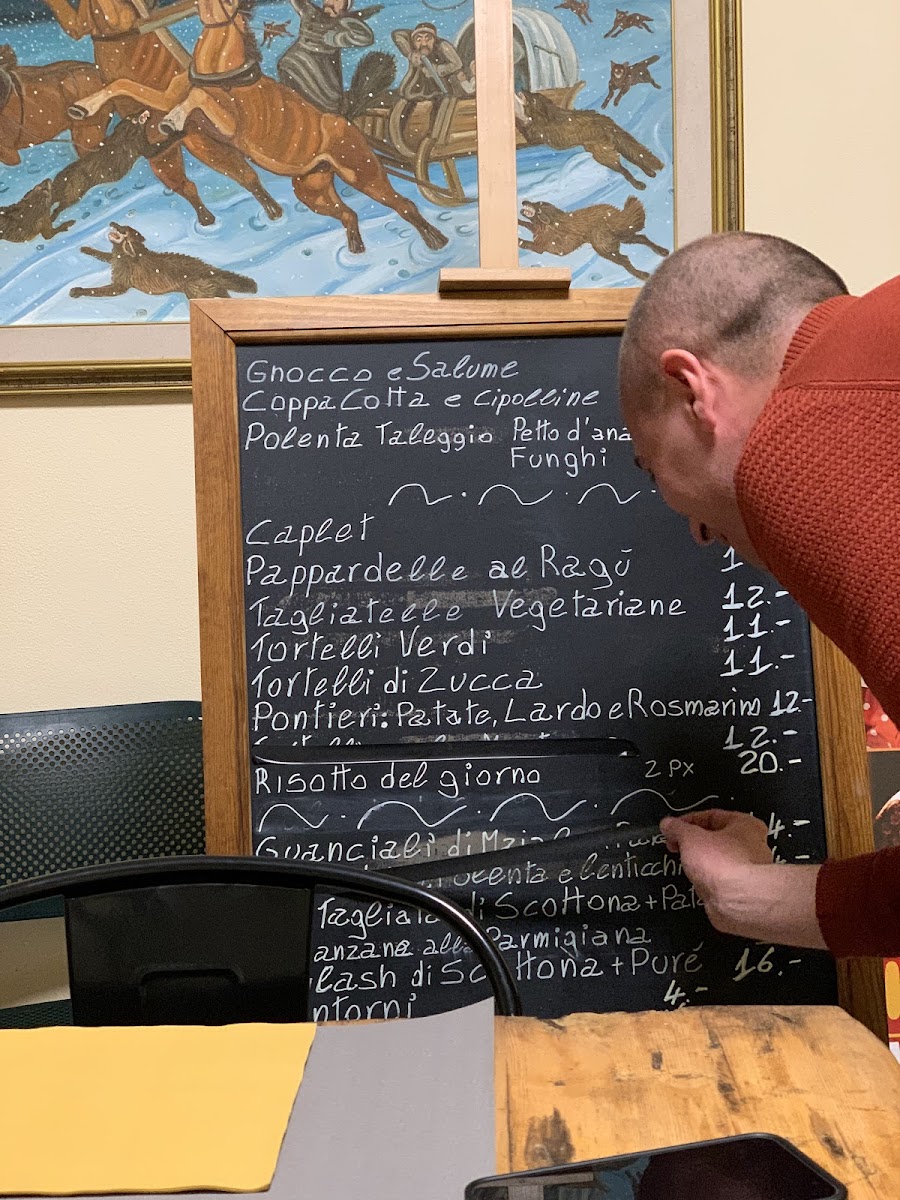 Gnocco e Salume
Coppa Cotta e cipolline
Polenta Taleggio Petto d'ana
Funghi
Caplet
Pappardelle al Ragū 1
Tagliatelle Vegetariane 12.-
Tortelli Verdi 11.-
Tortelli di Zucca 11.-
Pontieri: Patate, Lardo e Rosmarino 12-
12.-
Risotto del giorno 2 PX 20.-
Guanciali di Maial 4.-
e lenticchi
Tagliata di Scottona + Pat
anzane alla Parmigiana
lash di Scottona + Puré 16.-
ntorni 4.-